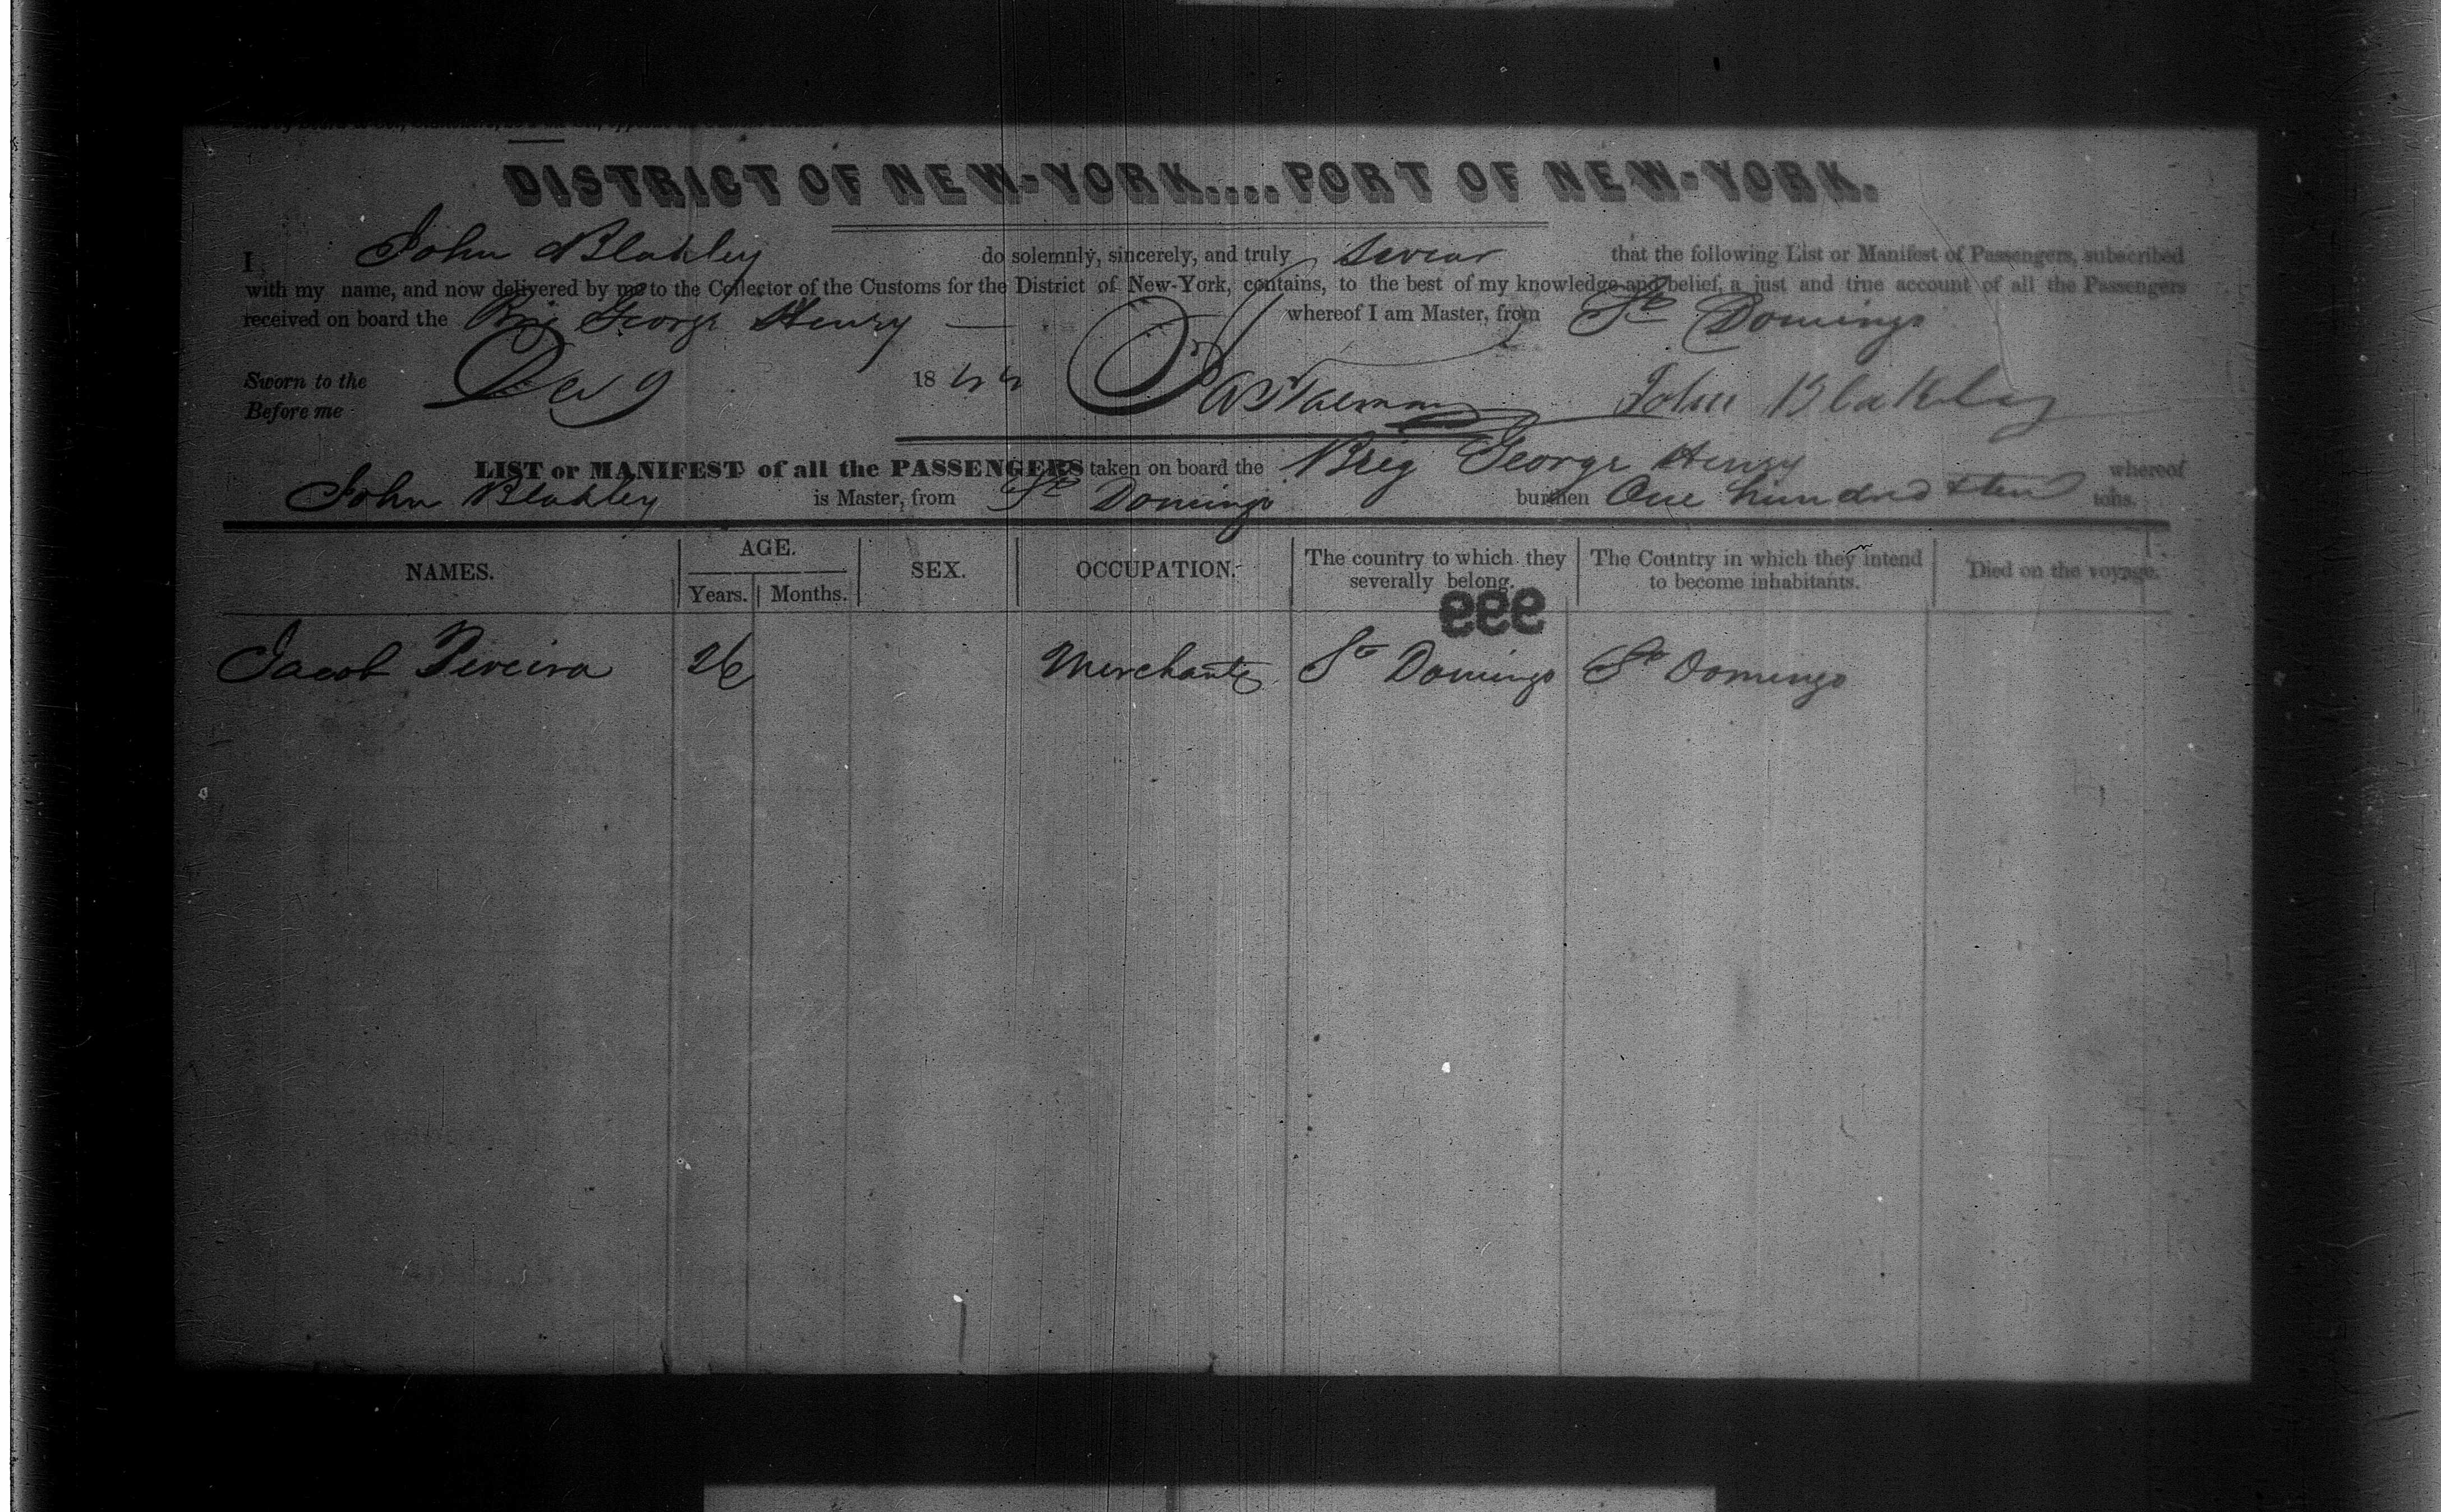 DISTRICT OF NEW-YORK....PORT OF NEW-YORK.
I, John Blakley do solemnly, sincerely, and truly swear that the following List or Manifest of Passengers, subscribed
with my name, and now delivered by me to the Collector of the Customs for the District of New-York, contains, to the best of my knowledge and belief, a just and true account of all the Passengers
received on board the Brig George Henry — whereof I am Master, from St Domingo
Sworn to the Dec 9 1844
Before me John Blakley
LIST or MANIFEST of all the PASSENGERS taken on board the Brig George Henry whereof
John Blakley is Master, from St Domingo burthen One hundred & ten tons.
NAMES. AGE. Years. Months. SEX. OCCUPATION. The country to which they severally belong. The Country in which they intend to become inhabitants. Died on the voyage.
999
Jacob Pereira 26 Merchant St Domingo St Domingo